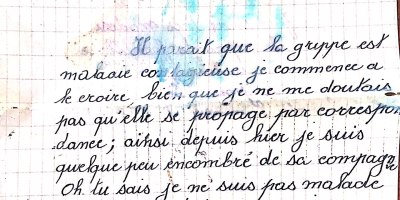 Il parait que la grippe est
maladie contagieuse je commence a
le croire, bien que je ne me doutais
pas qu'elle se propage par correspon
dance; ainsi depuis hier je suis
quelque peu encombré de sa compagn
Oh tu sais je ne suis pas malade